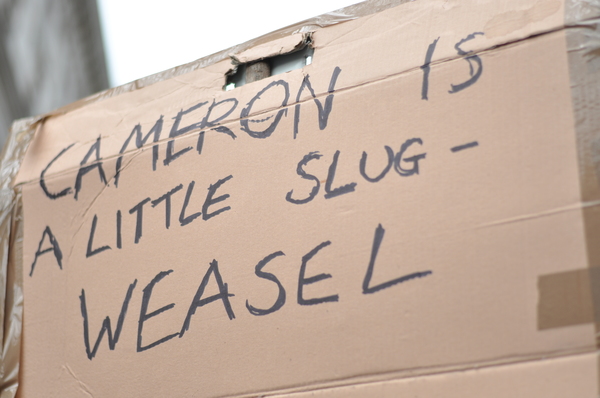 CAMERON IS
A LITTLE SLUG-
WEASEL